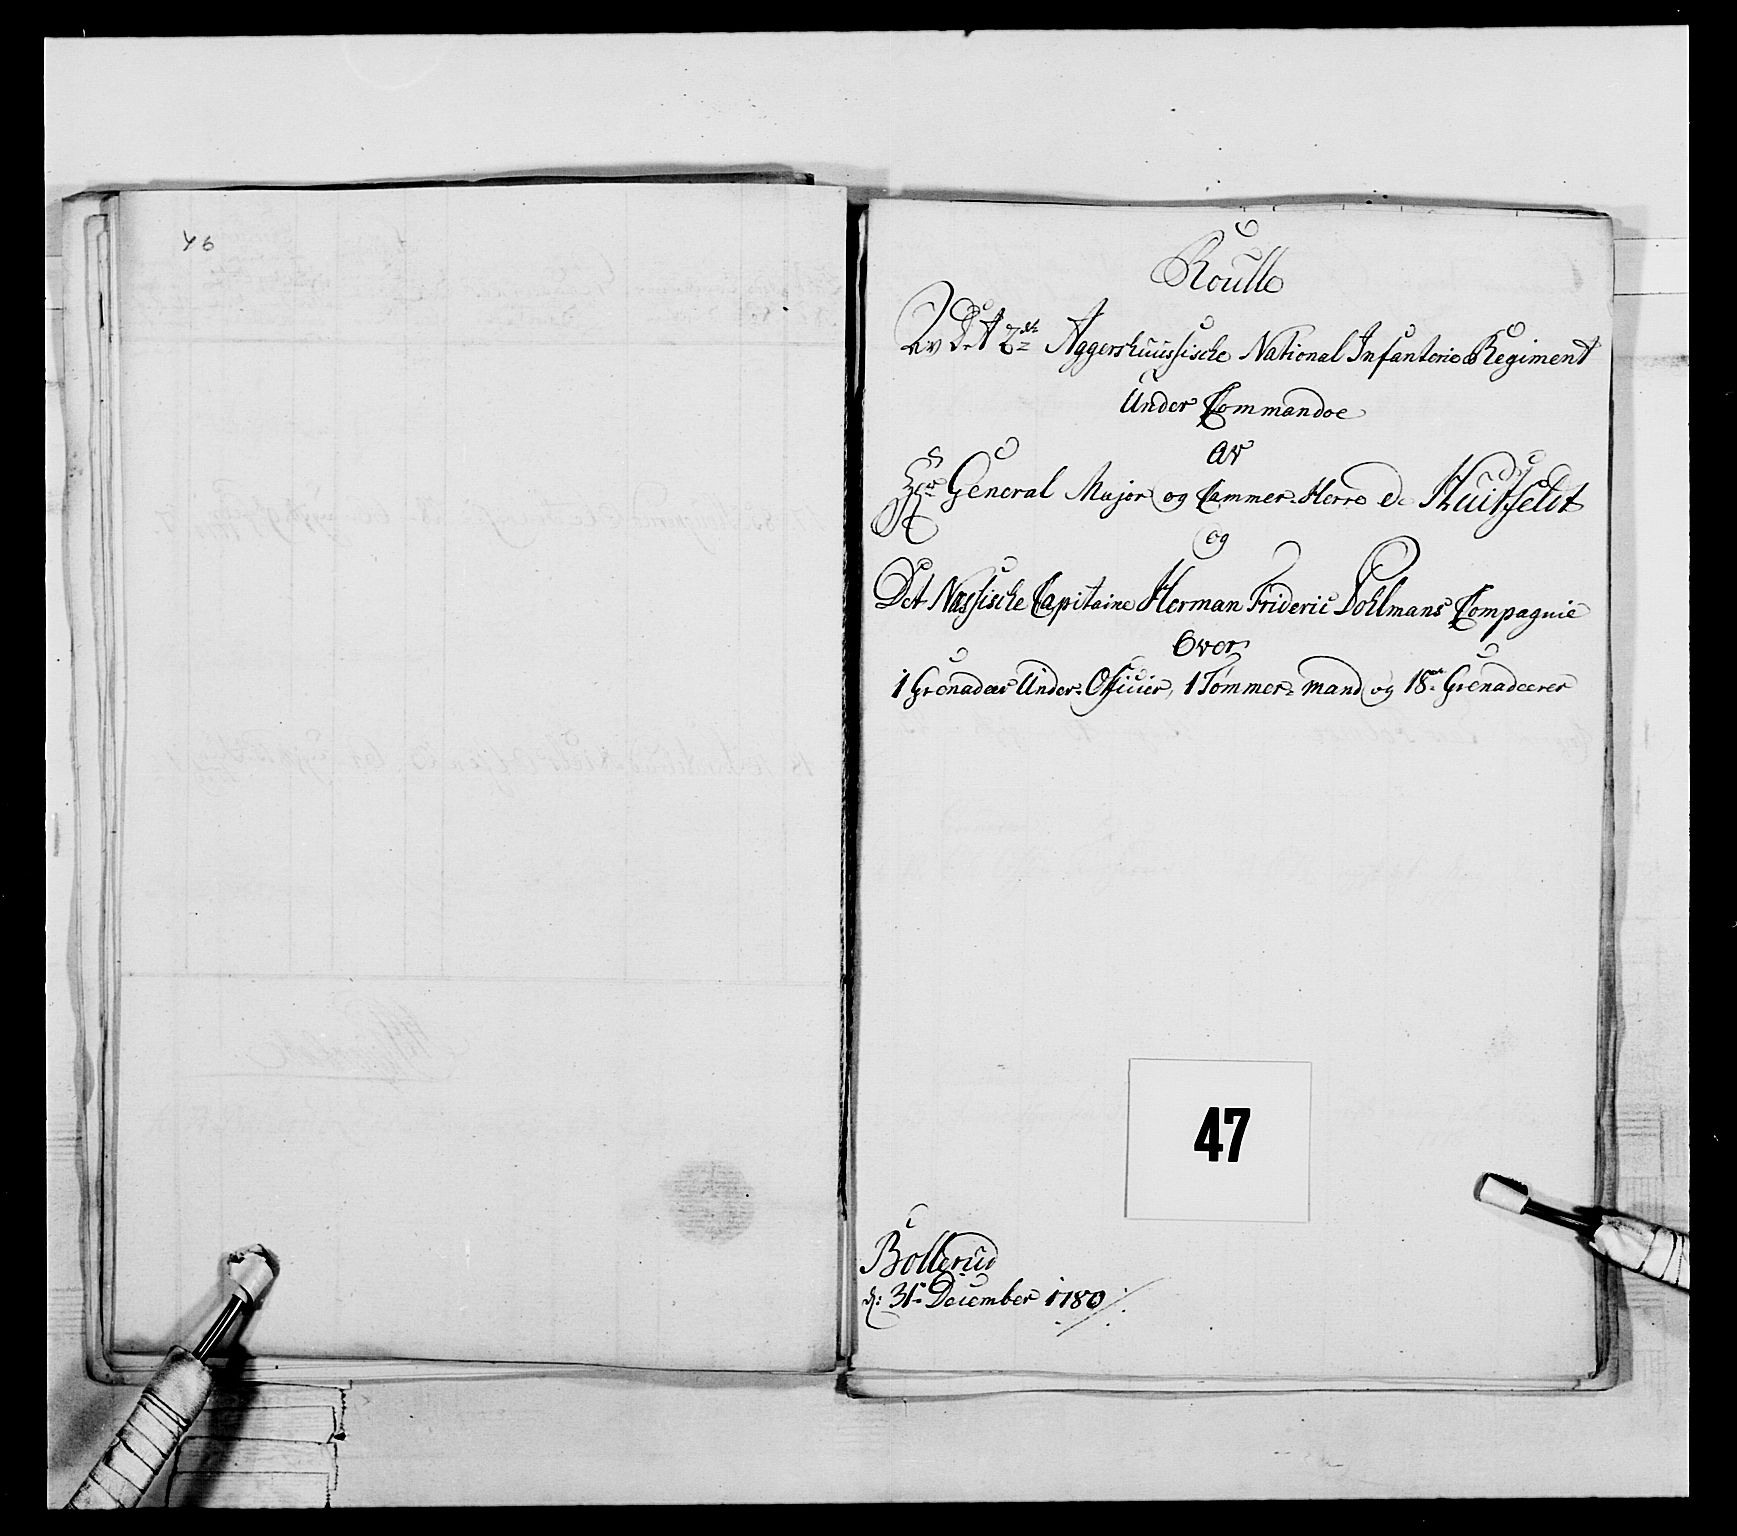 46
Roulle
Av Det 2de Aggershuussische National Infanterie Regiment
Under Commandoe
av
Hr General Major og Cammer-Herre de Huitfeldt
og
Det Næssische Capitaine Herman Frideric Pohlmans Compagnie
Over
1 Grenadeer Under-Officier, 1 Tømmer-mand og 18ten Grenadeerer
47
Bollerud
d: 31te December 1780